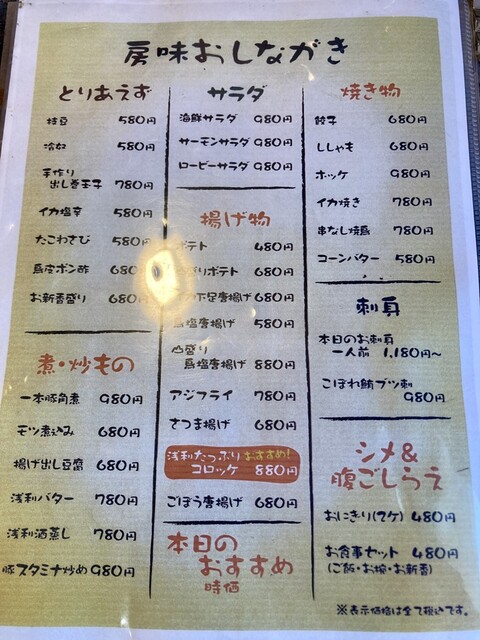 房味おしながき
とりあえず
枝豆 580円
冷奴 580円
手作り
出し巻玉子 780円
イカ塩辛 580円
たこわさび 580円
鳥皮ポン酢 680円
お新香盛り 680円
煮・炒もの
一本豚角煮 980円
モツ煮込み 680円
揚げ出し豆腐 680円
浅利バター 780円
浅利酒蒸し 780円
豚スタミナ炒め 980円
サラダ
海鮮サラダ 980円
サーモンサラダ 980円
ロービーサラダ 980円
揚げ物
ポテト 480円
ポテト 680円
下足唐揚げ 680円
鳥塩唐揚げ 580円
凸盛り
鳥塩唐揚げ 880円
アジフライ 780円
さつま揚げ 680円
浅利たっぷり おすすめ!
コロッケ 880円
ごぼう唐揚げ 680円
本日の
おすすめ
時価
焼き物
餃子 680円
ししゃも 680円
ホッケ 980円
イカ焼き 780円
串なし焼鳥 780円
コーンバター 580円
刺身
本日のお刺身
一人前 1,180円~
こぼれ鮪ブツ刺
980円
シメ&
腹ごしらえ
おにぎり(2ケ) 480円
お食事セット 480円
(ご飯・お椀・お新香)
※表示価格は全て税込です。